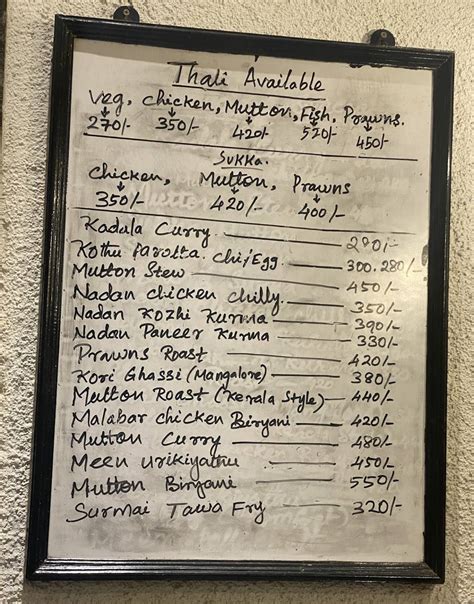 Thali Available
Veg, chicken, Mutton, Fish, Prawns.
270/- 350/- 420/- 520/- 450/-
Sukka.
chicken, Mutton, Prawns
350/- 420/- 400/-
Kadala Curry 290/-
Kothu Parotta. Chi/Egg 300.280/-
Mutton Stew 450/-
Nadan chicken chilly 350/-
Nadan Kozhi Kurma 390/-
Nadan Paneer Kurma 330/-
Prawns Roast 420/-
Kori Ghassi (Mangalore) 380/-
Mutton Roast (Kerala Style) 440/-
Malabar chicken Biryani 420/-
Mutton Curry 480/-
Meen urikiyathu 450/-
Mutton Biryani 550/-
Surmai Tawa Fry 320/-